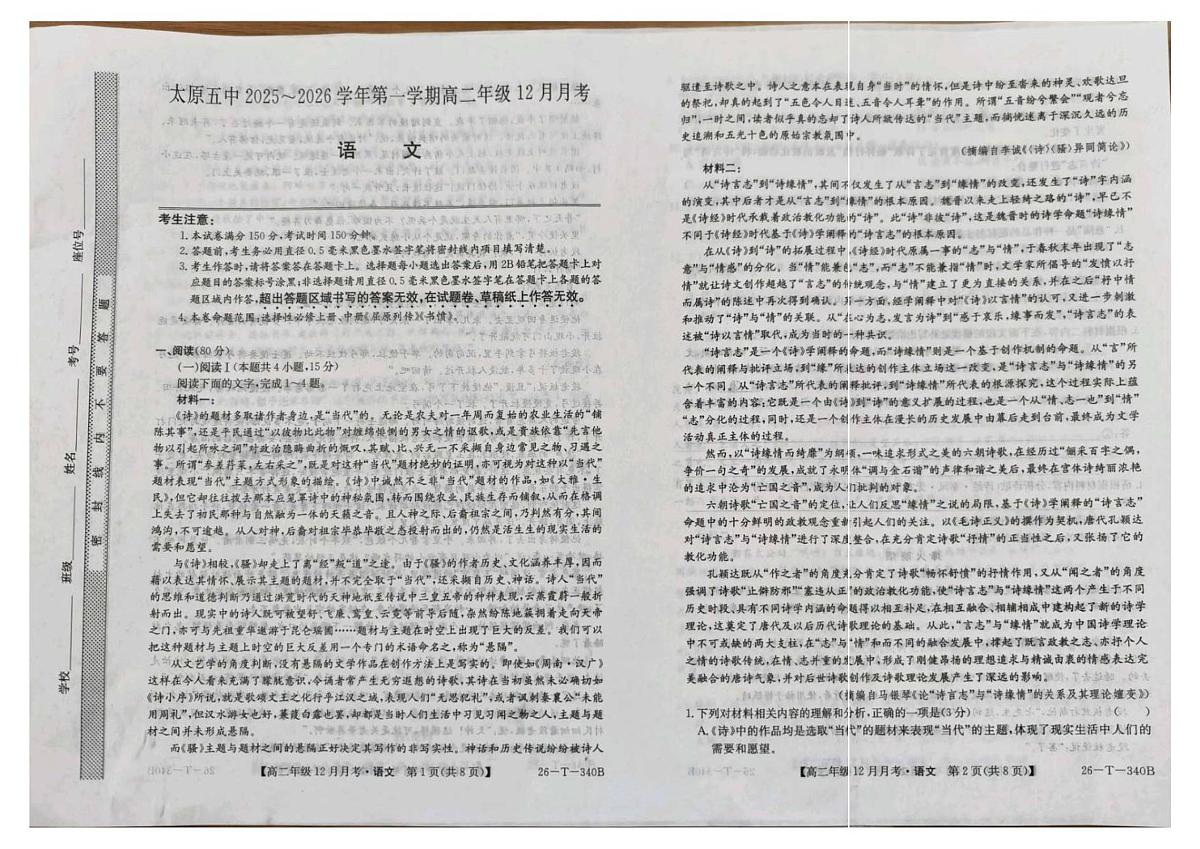 太原五中2025～2026学年第一学期高二年级12月月考
语　文
考生注意：
1.本试卷满分150分，考试时间150分钟。
2.答题前，考生务必用直径0.5毫米黑色墨水签字笔将密封线内项目填写清楚。
3.考生作答时，请将答案答在答题卡上。选择题每小题选出答案后，用2B铅笔把答题卡上对
应题目的答案标号涂黑；非选择题请用直径0.5毫米黑色墨水签字笔在答题卡上各题的答
题区域内作答，超出答题区域书写的答案无效，在试题卷、草稿纸上作答无效。
4.本卷命题范围：选择性必修上册、中册《屈原列传》《书愤》。
一、阅读(80分)
(一)阅读Ⅰ(本题共4小题，15分)
阅读下面的文字，完成1～4题。
材料一：
《诗》的题材多取诸作者身边，是“当代”的。无论是农夫对一年周而复始的农业生活的“铺
陈其事”，还是平民通过“以彼物比此物”对缠绵悱恻的男女之情的讴歌，或是贵族依靠“先言他
物以引起所咏之词”对政治隐晦曲折的慨叹，其赋、比、兴无一不采撷自身边常见之物、习遇之
事。所谓“参差荇菜，左右采之”，既是对这种“当代”题材绝妙的证明，亦可视为对这种以“当代”
题材表现“当代”主题方式形象的描绘。《诗》中诚然不乏非“当代”题材的作品，如《大雅·生
民》，但它却往往拨去那本应笼罩诗中的神秘氛围，转而围绕农业、民族生存而铺叙，从而在格调
上失去了初民那种与自然融为一体的天籁之音。且人神之际、后裔祖宗之间，乃判然有分，其间
鸿沟，不可逾越。从人对神，后裔对祖宗毕恭毕敬之态投射而出的，仍然是活生生的现实生活的
需要和愿望。
与《诗》相较，《骚》却走上了离“经”叛“道”之途。由于《骚》的作者历史、文化涵养丰厚，因而
藉以表达其情怀、展示其主题的题材，并不完全取于“当代”，还采撷自历史、神话。诗人“当代”
的思维和道德判断乃通过洪荒时代的天神地祇至传说中三皇五帝的种种表现，云蒸霞蔚一般折
射而出。现实中的诗人既可被望舒、飞廉、鸾皇、云霓等前导后随，杂然纷陈地簇拥着走向天帝
之门，亦可与先祖重华遨游于昆仑瑶圃……题材与主题在时空上出现了巨大的反差。我们可以
把这种题材与主题上时空的巨大反差用一个专门的术语命名之，称为“悬隔”。
从文艺学的角度判断，没有悬隔的文学作品在创作方法上是写实的。即使如《周南·汉广》
这样在今人看来充满了朦胧意识，令诵者常产生无穷遐想的诗歌，其诗在当初虽然未必确切如
《诗小序》所说，就是歌颂文王之化行乎江汉之域，表现人们“无思犯礼”，或者讽刺秦襄公“未能
用周礼”，但汉水游女也好，蒹葭白露也罢，却都是当时人们生活中习见习闻之物之人，主题与题
材之间并未形成悬隔。
而《骚》主题与题材之间的悬隔正好决定其写作的非写实性。神话和历史传说纷纷被诗人
【高二年级12月月考·语文　第1页(共8页)】　26-T-340B
学校
班级
姓名
考号
座位号
密　封　线　内　不　要　答　题
驱遣至诗歌之中。诗人之意本在表现自身“当时”的情怀，但是诗中纷至沓来的神灵、欢歌达旦
的祭祀，却真的起到了“五色令人目迷，五音令人耳聋”的作用。所谓“五音纷兮繁会”“观者兮忘
归”，一时之间，读者似乎真的忘却了诗人所欲传达的“当代”主题，而徜恍迷离于深沉久远的历
史追溯和五光十色的原始宗教氛围中。
(摘编自李诚《〈诗〉〈骚〉异同简论》)
材料二：
从“诗言志”到“诗缘情”，其间不仅发生了从“言志”到“缘情”的改变，还发生了“诗”字内涵
的演变，其中后者才是从“言志”到“缘情”的根本原因。魏晋以来走上轻绮之路的“诗”，早已不
是《诗经》时代承载着政治教化功能的“诗”。此“诗”非彼“诗”，这是魏晋时的诗学命题“诗缘情”
不同于《诗经》时代基于《诗》学阐释的“诗言志”的根本原因。
在从《诗》到“诗”的拓展过程中，《诗经》时代原属一事的“志”与“情”，于春秋末年出现了“志
意”与“情感”的分化。当“情”能兼包“志”，而“志”不能兼指“情”时，文学家所倡导的“发愤以抒
情”就让诗文创作超越了“言志”的传统观念，与“情”建立了更为直接的关系，并在之后“抒中情
而属诗”的陈述中再次得到确认。另一方面，经学阐释中对“《诗》以言情”的认可，又进一步刺激
和推动了“诗”与“情”的关联。从“在心为志，发言为诗”到“感于哀乐，缘事而发”，“诗言志”的表
达被“诗以言情”取代，成为当时的一种共识。
“诗言志”是一个《诗》学阐释的命题，而“诗缘情”则是一个基于创作机制的命题。从“言”所
代表的阐释与批评立场，到“缘”所表达的创作主体立场这一改变，是“诗言志”与“诗缘情”的另
一个不同。从“诗言志”所代表的阐释批评，到“诗缘情”所代表的根源探究，这个过程实际上蕴
含着丰富的内容，它既是一个由《诗》到“诗”的意义扩展的过程，也是一个从“情、志一也”到“情”
“志”分化的过程，同时，还是一个创作主体在漫长的历史发展中由幕后走到台前，最终成为文学
活动真正主体的过程。
然而，以“诗缘情而绮靡”为纲领，一味追求形式之美的六朝诗歌，在经历过“俪采百字之偶，
争价一句之奇”的发展，成就了永明体“调与金石谐”的声律和谐之美后，最终在宫体诗绮丽浓艳
的追求中沦为“亡国之音”，成为人们批判的对象。
六朝诗歌“亡国之音”的定位，让人们反思“缘情”之说的局限，基于《诗》学阐释的“诗言志”
命题中的十分鲜明的政教观念重新引起人们的关注。以《毛诗正义》的撰作为契机，唐代孔颖达
对“诗言志”与“诗缘情”进行了深度整合，在充分肯定诗歌“抒情”的正当性之后，又张扬了它的
教化功能。
孔颖达既从“作之者”的角度充分肯定了诗歌“畅怀舒愤”的抒情作用，又从“闻之者”的角度
强调了诗歌“止僻防邪”“塞违从正”的政治教化功能，使“诗言志”与“诗缘情”这两个产生于不同
历史时段、具有不同诗学内涵的命题得以相互补足，在相互融合、相辅相成中建构起了新的诗学
理论，这奠定了唐代及以后历代诗歌理论的基础。从此，“言志”与“缘情”就成为中国诗学理论
中不可或缺的两大支柱，在“志”与“情”和而不同的融合发展中，撑起了既言政教之志、亦抒个人
之情的诗歌传统，在情、志并重的发展中，形成了刚健昂扬的理想追求与精诚由衷的情感表达完
美融合的唐诗气象，并对后世诗歌创作及诗歌理论发展产生了深远的影响。
(摘编自马银琴《论“诗言志”与“诗缘情”的关系及其理论嬗变》)
1.下列对材料相关内容的理解和分析，正确的一项是(3分)　(　　)
A.《诗》中的作品均是选取“当代”的题材来表现“当代”的主题，体现了现实生活中人们的
需要和愿望。
【高二年级12月月考·语文　第2页(共8页)】　26-T-340B